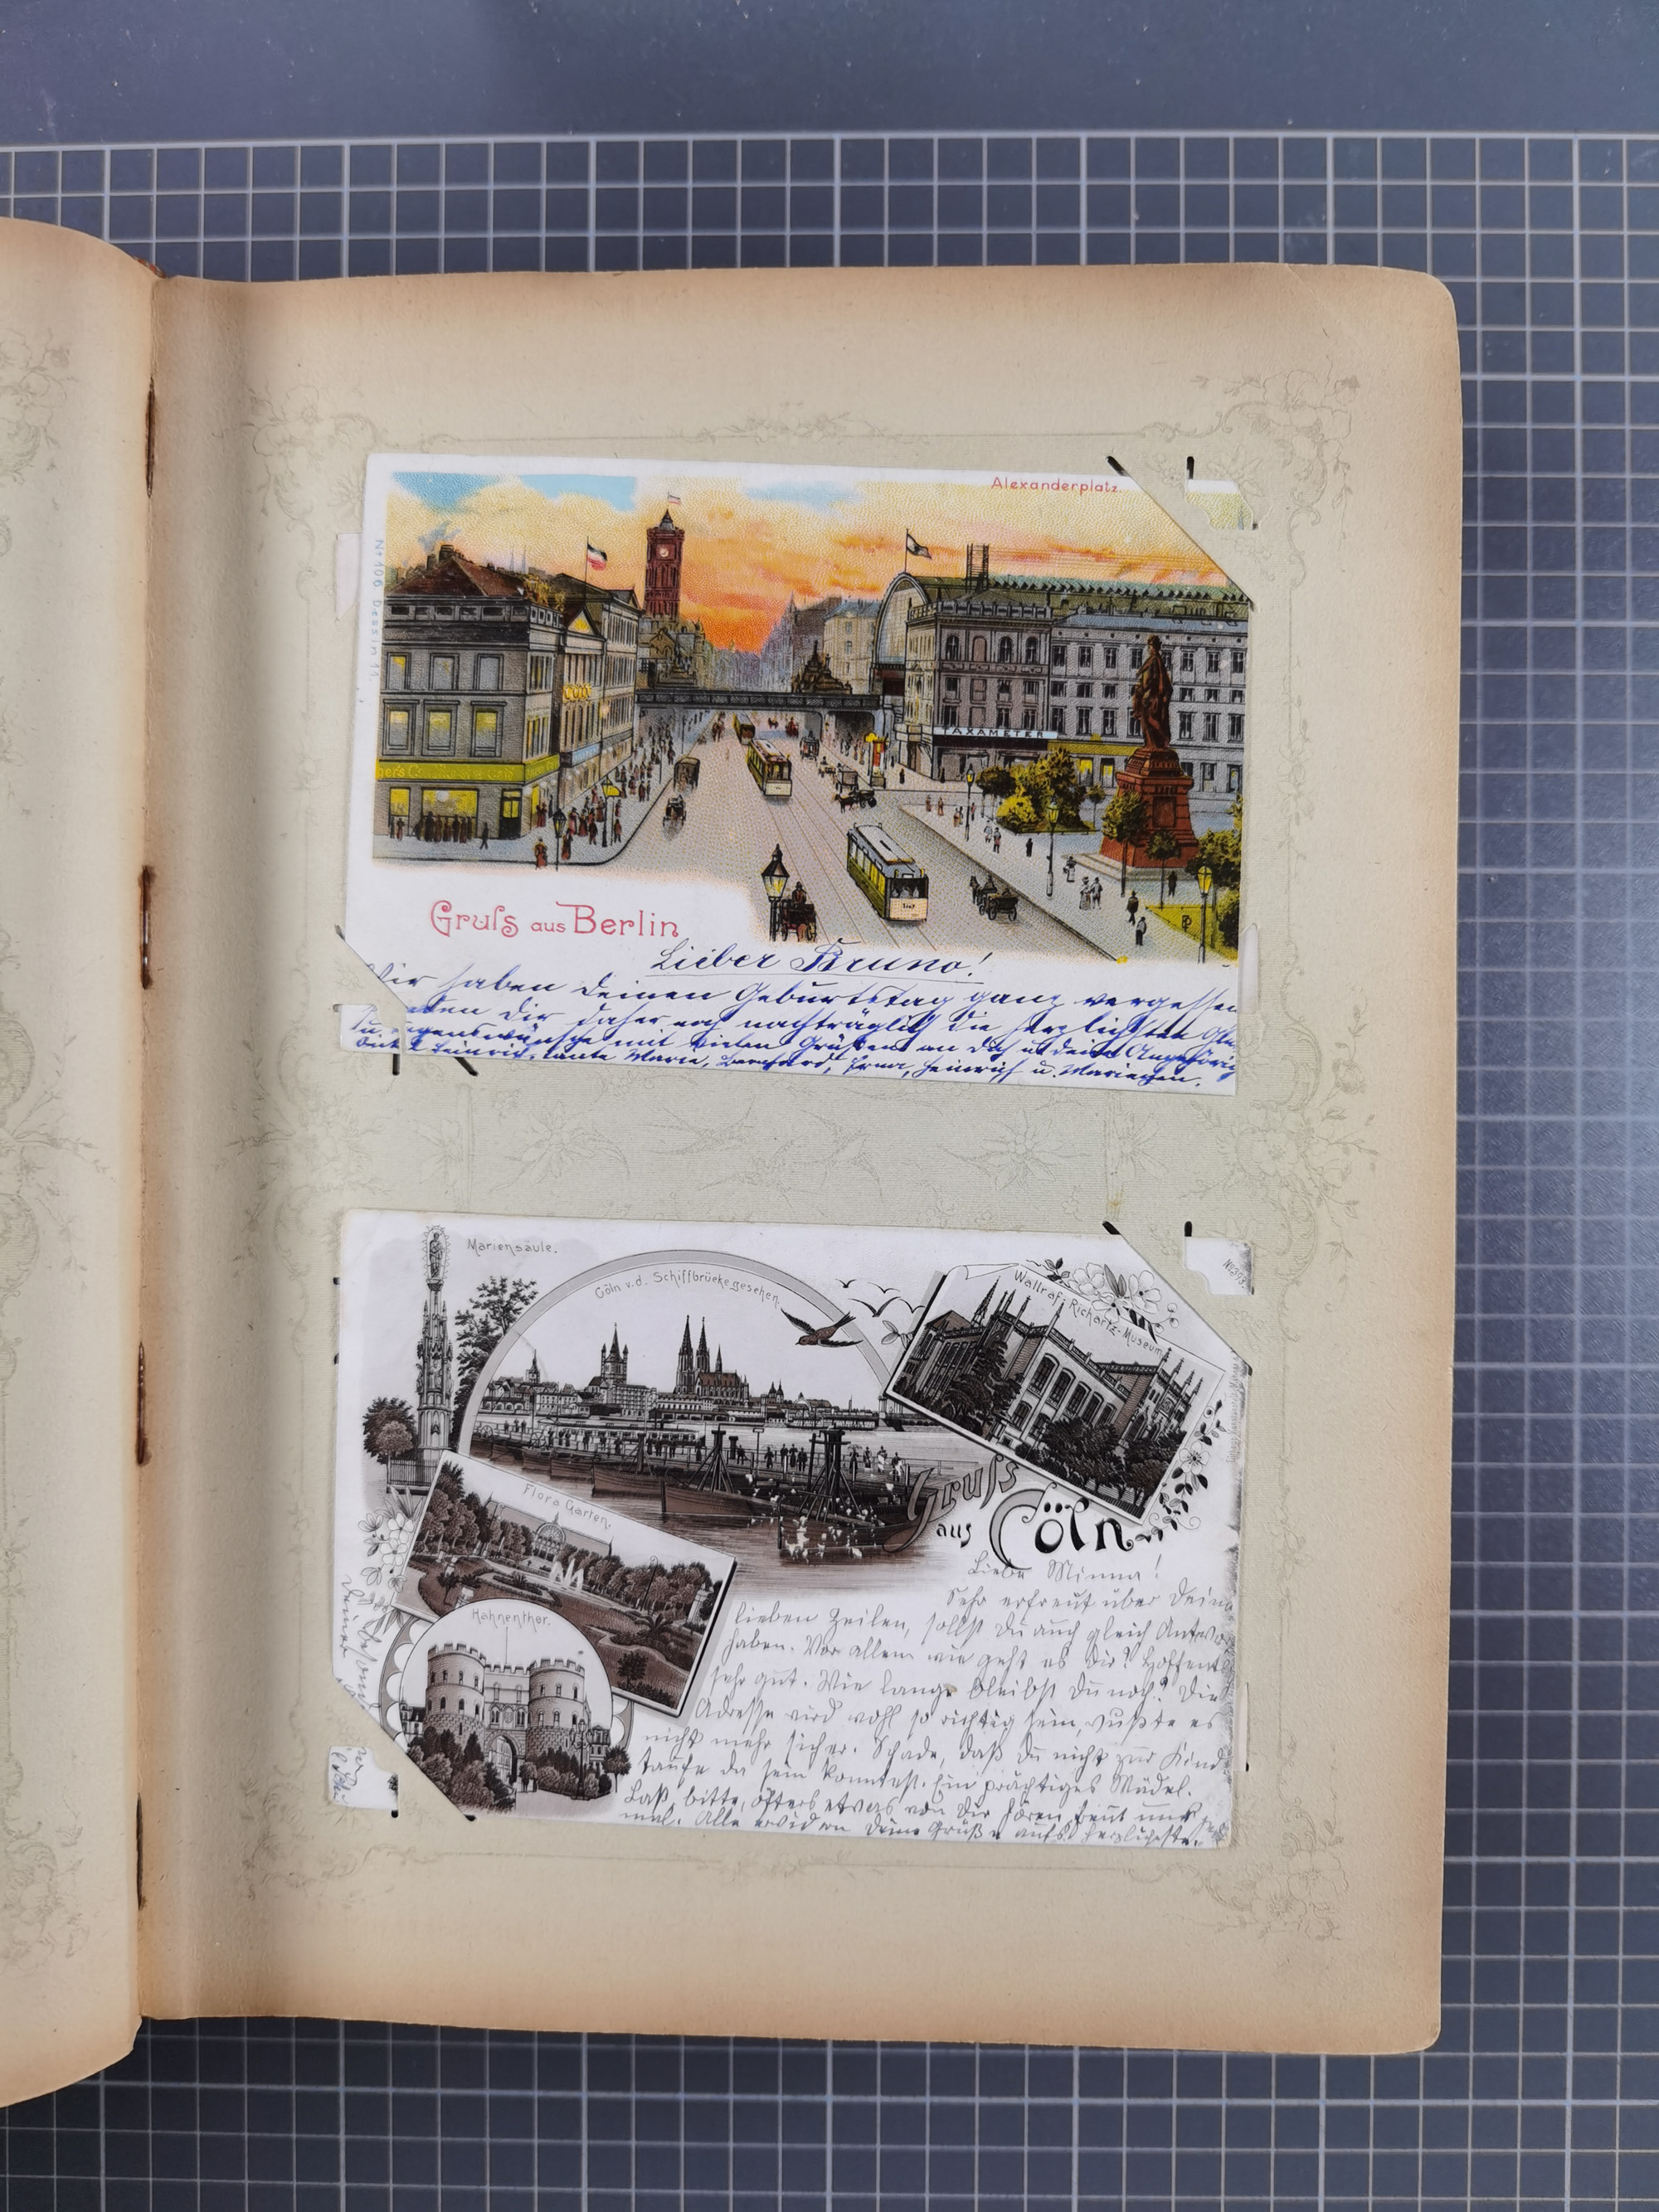 Alexanderplatz.
No 106 Dessin 11.
TAXAMETER
Gruſs aus Berlin
Lieber Bruno!
Wir haben deinen Geburtstag ganz vergessen
dir daher noch nachträglich die herzlichsten
mit vielen Grüßen an dich u. deine Angehörig
Heinrich, Tante Marie, Bernhard, Erna, Heinrich u. Mariechen.
Mariensäule.
Cöln v. d. Schiffbrücke gesehen.
Wallraf-Richartz-Museum
Flora Garten.
Hahnenthor.
Gruſs
aus Cöln
Liebe Minna!
Sehr erfreut über Deine
lieben Zeilen, sollst Du auch gleich Antwor
haben. Vor allem wie geht es Dir? Hoffentl
sehr gut. Wie lange bleibst Du noch? Die
Adresse wird wohl so richtig sein, wußte es
nicht mehr sicher. Schade, daß Du nicht zur Kind
taufe da sein konntest. Ein prächtiges Mädel.
Laß, bitte, öfters etwas von Dir hören, freut uns
mal. Alle erwidern Deine Grüße aufs herzlichste.